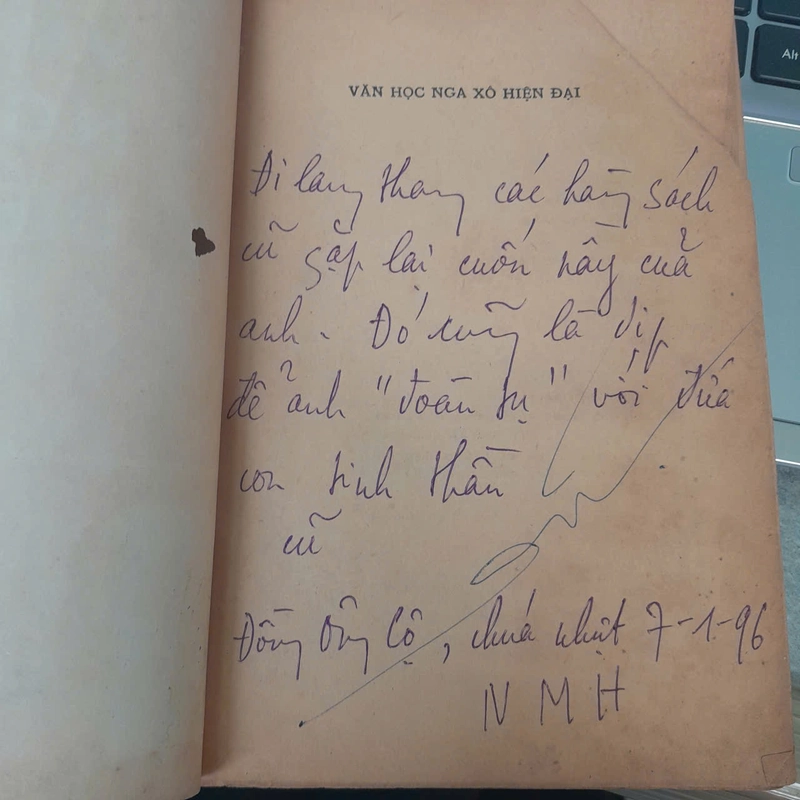 VĂN HỌC NGA XÔ HIỆN ĐẠI
Đi lang thang các hàng sách
cũ gặp lại cuốn nầy của
anh. Đó cũng là dịp
để anh "đoàn tụ" với đứa
con tinh thần
cũ
Đồng Ông Cộ, chúa nhựt 7-1-96
NMH
Alt